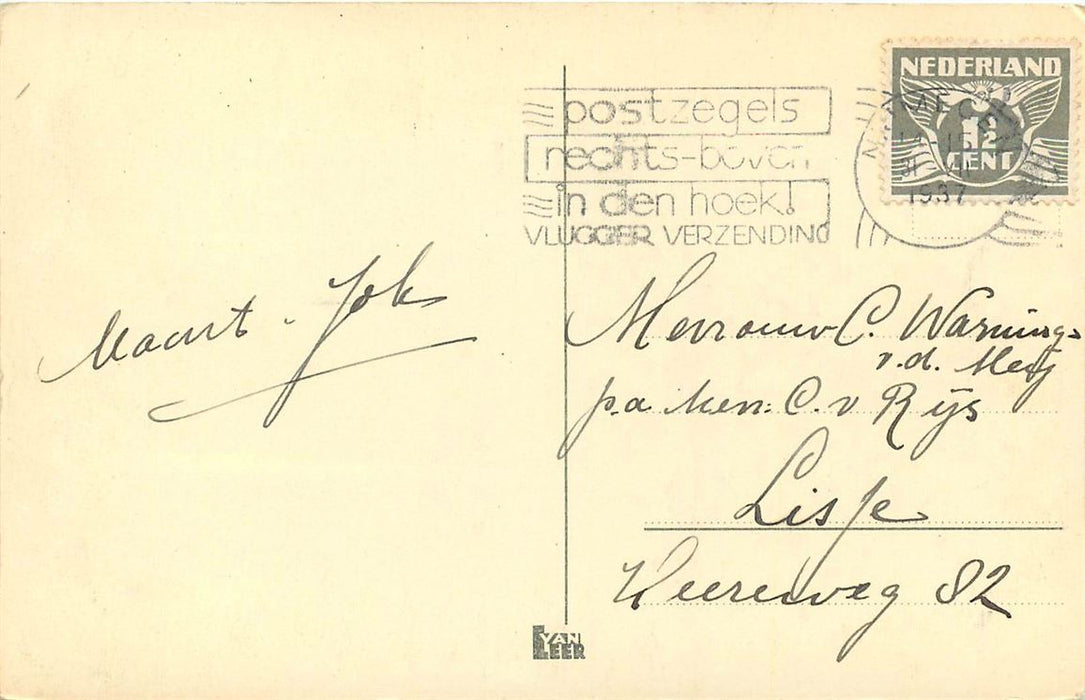 NEDERLAND
1½
CENT
postzegels
rechts-boven
in den hoek!
VLUGGER VERZENDING
1937
Maart - Jok
Mevrouw C. Warning-
v.d. Meij
p.a Mevr: C. v Rijs
Lisse
Heereweg 82
VAN
LEER